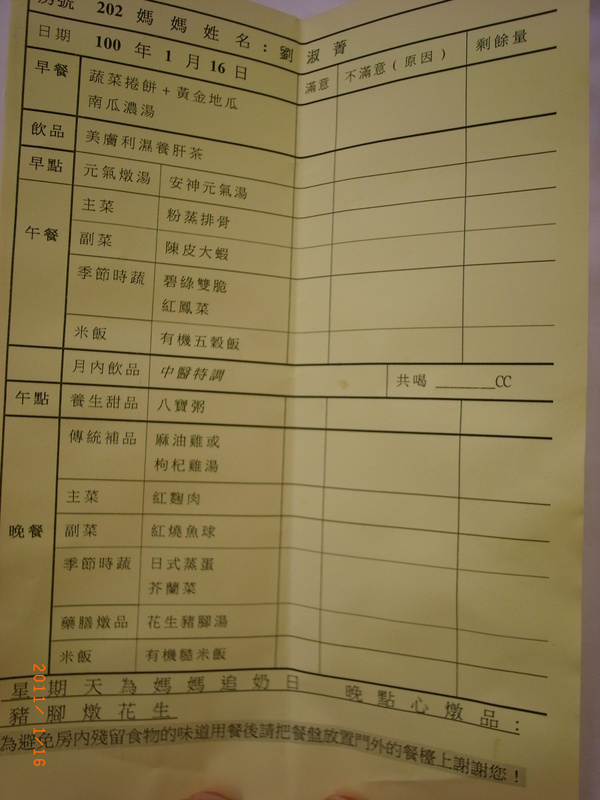 房號 202 媽媽姓名：劉淑菁
日期 100 年 1 月 16 日
滿意 不滿意（原因） 剩餘量
早餐 蔬菜捲餅+黃金地瓜
南瓜濃湯
飲品 美膚利濕養肝茶
早點 元氣燉湯 安神元氣湯
午餐 主菜 粉蒸排骨
副菜 陳皮大蝦
季節時蔬 碧綠雙脆
紅鳳菜
米飯 有機五穀飯
月內飲品 中醫特調 共喝 ________CC
午點 養生甜品 八寶粥
晚餐 傳統補品 麻油雞或
枸杞雞湯
主菜 紅麴肉
副菜 紅燒魚球
季節時蔬 日式蒸蛋
芥蘭菜
藥膳燉品 花生豬腳湯
米飯 有機糙米飯
星期天為媽媽追奶日 晚點心燉品：
豬腳燉花生
為避免房內殘留食物的味道用餐後請把餐盤放置門外的餐檯上謝謝您！
2011/1/16